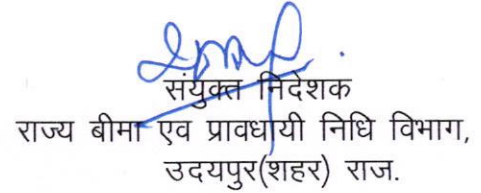 संयुक्त निदेशक
राज्य बीमा एव प्रावधायी निधि विभाग,
उदयपुर(शहर) राज.